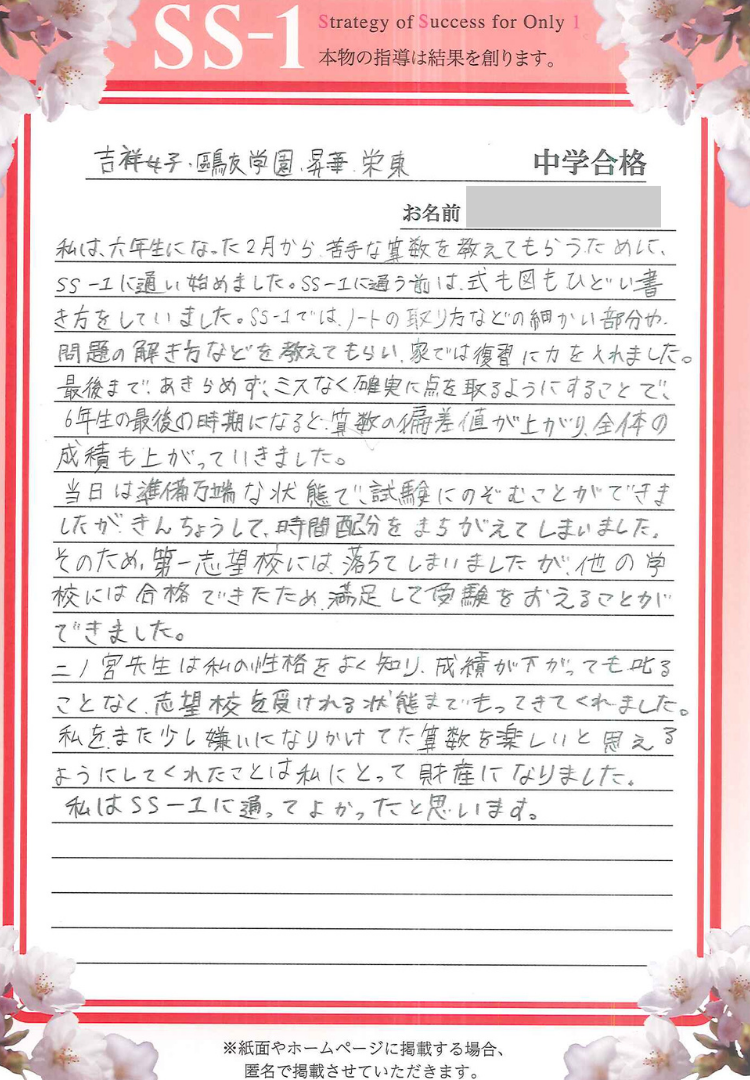 SS-1
Strategy of Success for Only 1
本物の指導は結果を創ります。
吉祥女子・鷗友学園・昇華・栄東 中学合格
お名前
私は、六年生になった2月から、苦手な算数を教えてもらうために、
SS-1に通い始めました。SS-1に通う前は、式も図もひどい書
き方をしていました。SS-1では、ノートの取り方などの細かい部分や、
問題の解き方などを教えてもらい、家では復習に力を入れました。
最後まで、あきらめず、ミスなく確実に点を取るようにすることで、
6年生の最後の時期になると、算数の偏差値が上がり、全体の
成績も上がっていきました。
当日は準備万端な状態で、試験にのぞむことができま
したが、きんちょうして、時間配分をまちがえてしまいました。
そのため、第一志望校には、落ちてしまいましたが、他の学
校には合格できたため、満足して受験をおえることが
できました。
二ノ宮先生は私の性格をよく知り、成績が下がっても叱る
ことなく、志望校を受けれる状態までもってきてくれました。
私を、また少し嫌いになりかけてた算数を楽しいと思える
ようにしてくれたことは私にとって財産になりました。
私はSS-1に通ってよかったと思います。
※紙面やホームページに掲載する場合、
匿名で掲載させていただきます。